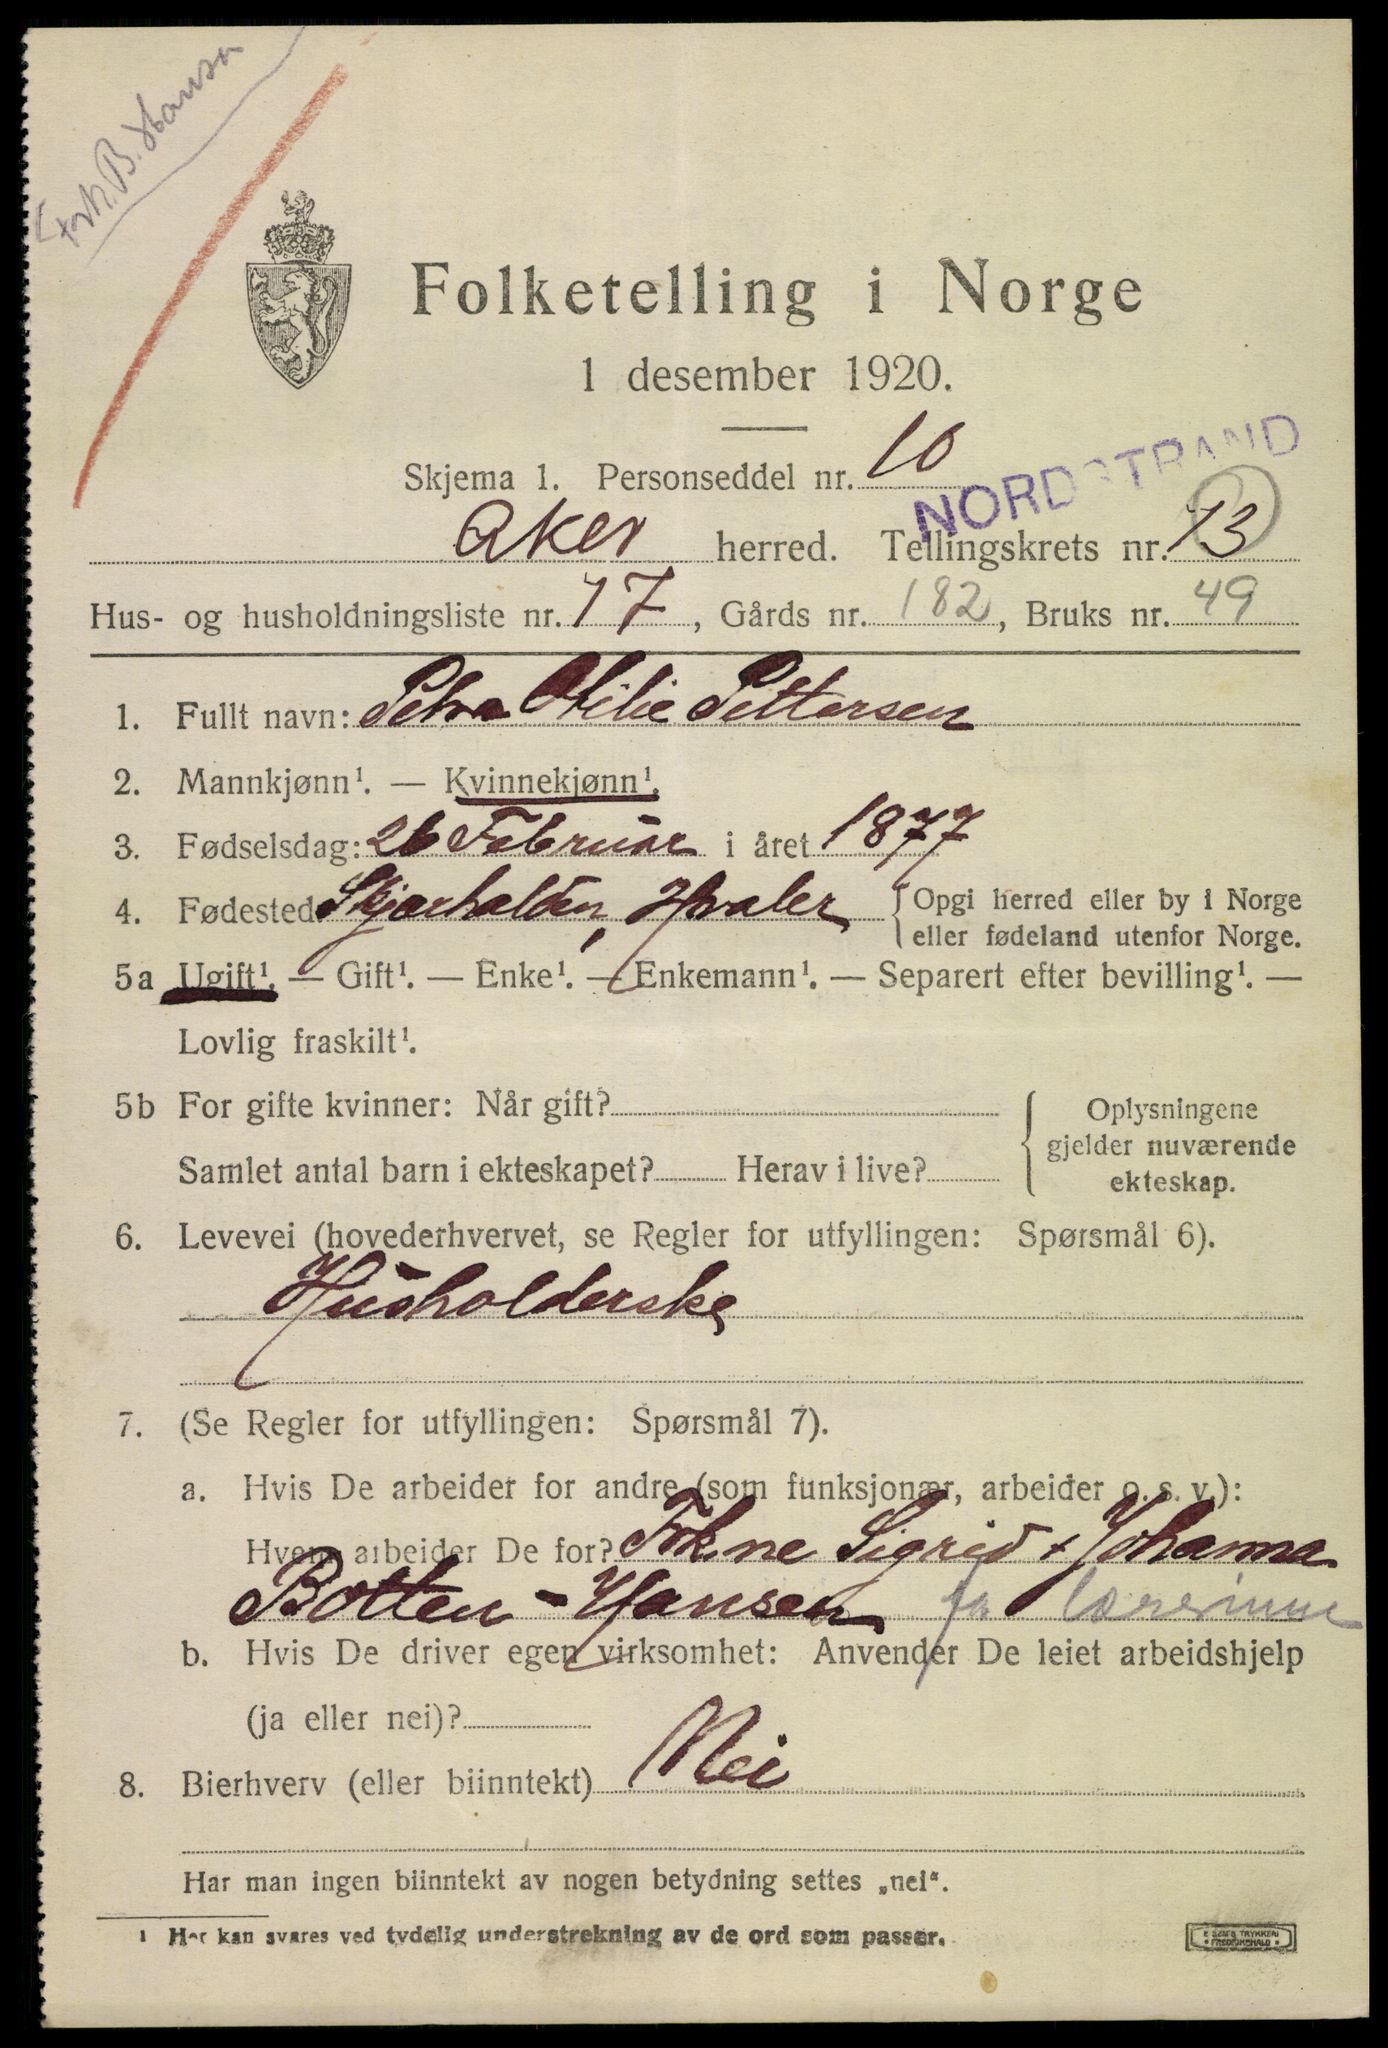 Frk. B. Hansen
Folketelling i Norge
1 desember 1920.
Skjema 1. Personseddel nr. 10
NORDSTRAND
Aker herred. Tellingskrets nr. 13
Hus- og husholdningsliste nr. 17, Gårds nr. 182, Bruks nr. 49
1. Fullt navn: Petra Otilie Pettersen
2. Mannkjønn¹. — Kvinnekjønn¹.
3. Fødselsdag: 26 Februar i året 1877
4. Fødested Skjærhalden, Hvaler { Opgi herred eller by i Norge
eller fødeland utenfor Norge.
5a Ugift¹. — Gift¹. — Enke¹. — Enkemann¹. — Separert efter bevilling¹. —
Lovlig fraskilt¹.
5b For gifte kvinner: Når gift? { Oplysningene
gjelder nuværende
Samlet antal barn i ekteskapet? Herav i live? ekteskap.
6. Levevei (hovederhvervet, se Regler for utfyllingen: Spørsmål 6).
Husholderske
7. (Se Regler for utfyllingen: Spørsmål 7).
a. Hvis De arbeider for andre (som funksjonær, arbeider o. s. v.):
Hvem arbeider De for? Frkne Sigrid + Johanna
Botten-Hansen lærerinne
b. Hvis De driver egen virksomhet: Anvender De leiet arbeidshjelp
(ja eller nei)?
8. Bierhverv (eller biinntekt) Nei
Har man ingen biinntekt av nogen betydning settes „nei“.
1 Her kan svares ved tydelig understrekning av de ord som passer.